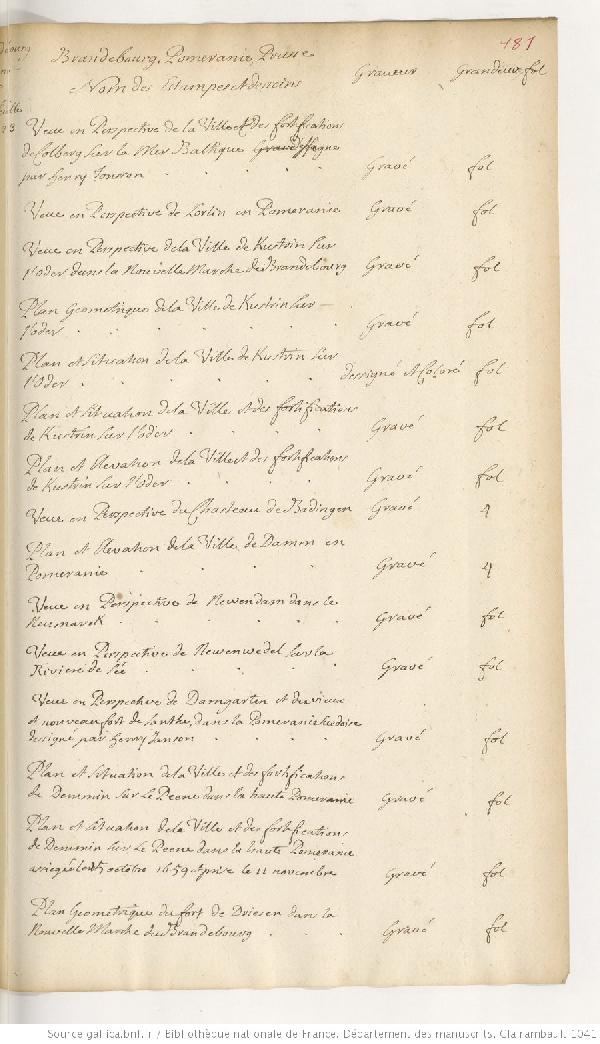 481
Brandebourg, Pomeranie, Prusse
Nom des Estampes et desseins Graveur Grandeur fol
Veue en Perspective de la Ville et des fortifications
de Colberg sur la Mer Baltique
par Henry Jonson . . . . Gravé fol
Veue en Perspective de Corlin en Pomeranie Gravé fol
Veue en Perspective de la Ville de Kustrin sur
l'oder dans la Nouvelle Marche de Brandebourg Gravé fol
Plan Geometrique de la Ville de Kustrin sur
l'oder . . . . . . Gravé fol
Plan et Situation de la Ville de Kustrin sur
l'Oder . . . . . dessigné et Coloré fol
Plan et Situation de la Ville et des fortifications
de Kustrin sur l'oder . . . . Gravé fol
Plan et Elevation de la Ville et des fortifications
de Kustrin sur l'oder . . . . Gravé fol
Veue en Perspective du Chasteau de Badingen Gravé 4
Plan et Elevation de la Ville de Damm en
Pomeranie . . . . . Gravé 4
Veue en Perspective de Newendam dans le
Neumarck . . . . . Gravé fol
Veue en Perspective de Newenwedel sur la
Riviere de . . . . Gravé fol
Veue en Perspective de Damgarten et du vieux
et nouveau fort de dans la Pomeranie Suedoise
dessigné par Henry Janson . . . Gravé fol
Plan et Situation de la Ville et des fortifications
de Demmin sur Le Peene dans la haute Pomeranie Gravé fol
Plan et Situation de la Ville et des fortifications
de Demmin sur Le Peene dans la haute Pomeranie
assiegée le octobre 1659 et prise le 11 novembre Gravé fol
Plan Geometrique du fort de Driesen dans la
Nouvelle Marche du Brandebourg . . . Gravé fol
Source gallica.bnf.fr / Bibliothèque nationale de France. Département des manuscrits. Clairambault 1041